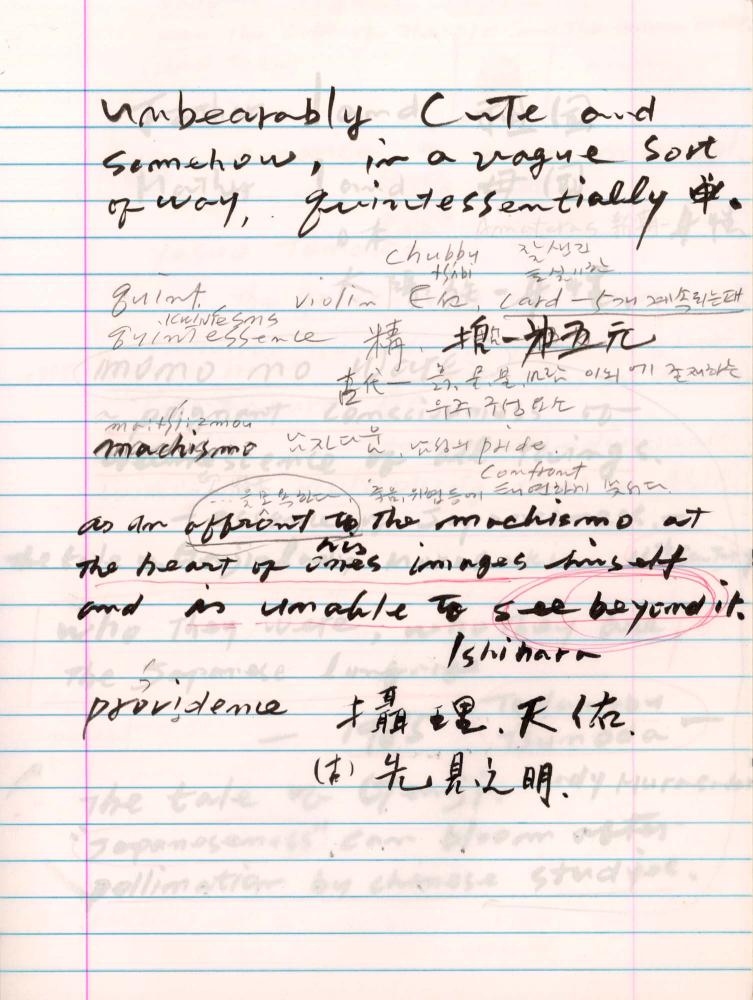 unbearably cute and
somehow, in a vague sort
of way, quintessentially
chubby 잘생긴
quint violin E선, card – 5개 계속되는패
quintessence 精.
古代 – 흙, 물, 불, 바람 이외에 존재하는
우주 구성요소
machismo 남자다움, 남성의 pride.
confront
모욕하다. 죽음, 위협등에 태연하게 맞서다.
as an affront to the machismo at
his
the heart of ones images himself
and is unable to see beyond it.
Ishihara
providence 攝理. 天佑.
(古) 先見之明.